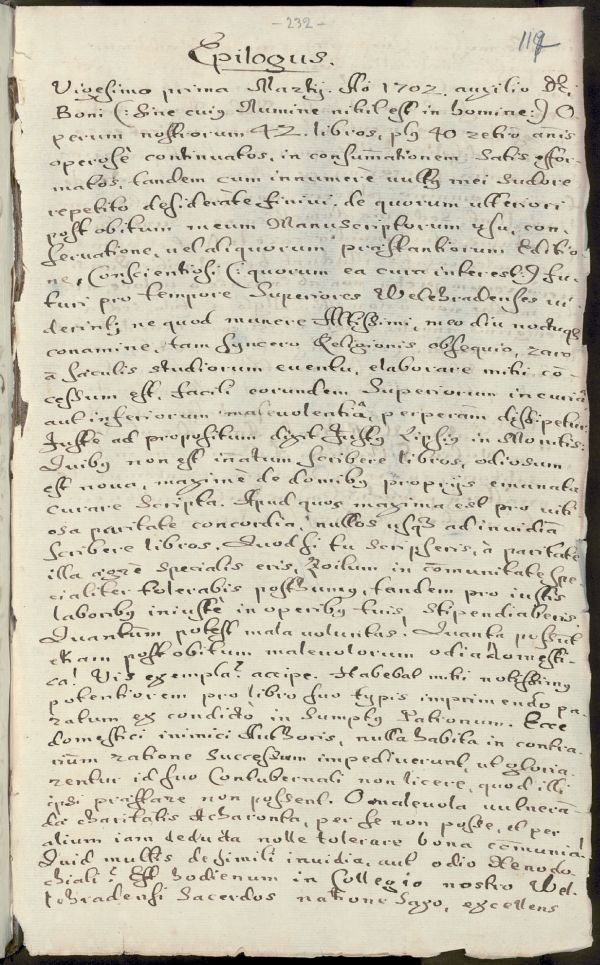 - 232 -
119
Epilogus.
Vigesimo prima Martij Aõ 1702. auxilio Dei
Boni (: sine cuius Numine nihil est in homine :) O-
perum nostrorum 42. libros, plus 40 retro annis
operosè continuatos, in consumationem satis effor-
matos, tandem cum innumere vultus mei sudore
repetito desideratè finivi. de quorum ulteriori
post obitum meum Manuscriptorum usu, con-
servatione, vel aliquorum præstantiorum Editio-
ne, Conscientiosi (: quorum ea cura interest :) fu-
turi pro tempore Superiores Welehradenses vi-
derint; ne quod munere Altissimi, meo diu noctuque
conamine, tam syncero Religionis obsequio, raro
à sæculis studiorum eventu, elaborare mihi con-
cessum est, facili eorundem Superiorum incuriâ
aut inferiorum malevolentiâ, perperam dissipetur.
Justè ad propositum dixit Justus Lipsius in Monitis:
Quibus non est innatum scribere libros, odiosum
est nova, maximè de domibus proprijs emanata
curare scripta. Apud quos maxima est pro viti-
osa paritate concordia, nullos usque ad invidiã
scribere libros. Quod si tu scripseris, à paritate
illa ægrè specialis eris, Zoilum in cõmunitate spe-
cialiter tolerabis posthumus, tandem pro iustis
laboribus iniustè in operibus tuis, stipendiaberis.
Quantum potest mala voluntas! Quanta possunt
etiam post obitum malevolorum odia domesti-
ca! Vis exempla? accipe. Habebat mihi notissimus
potentiorem pro libro suo typis imprimendo pa-
ratum ex condicto in sumptus Patronum. Ecce
domestici inimici Authoris, nulla habita in contra-
rium ratione successum impediverunt, ut gloria-
rentur id suo Contubernali non licere, quod illi
ipsi præstare non possent. O malevola vulneran-
da charitatis Acharonta, per se non posse, et per
alium iam deducta nolle tolerare bona comunia!
Quid multis de simili invidia, aut odio Xenodo-
chiali? Est hodienum in Collegio nostro Wel-
lehradensi Sacerdos natione Saxo, excellens